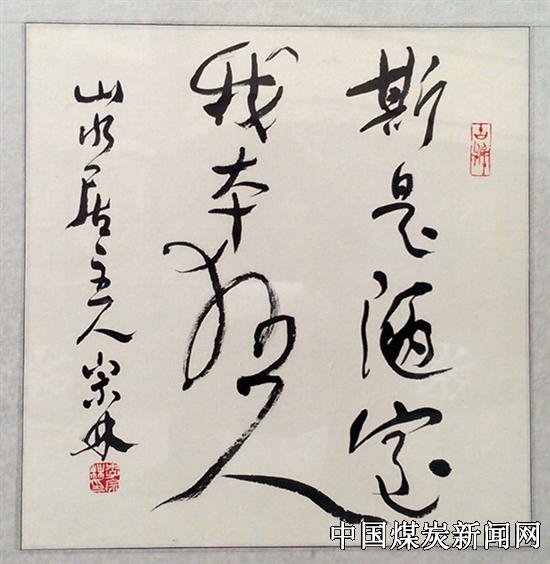 斯是陋室
我本人
山水居主人林
中国煤炭新闻网